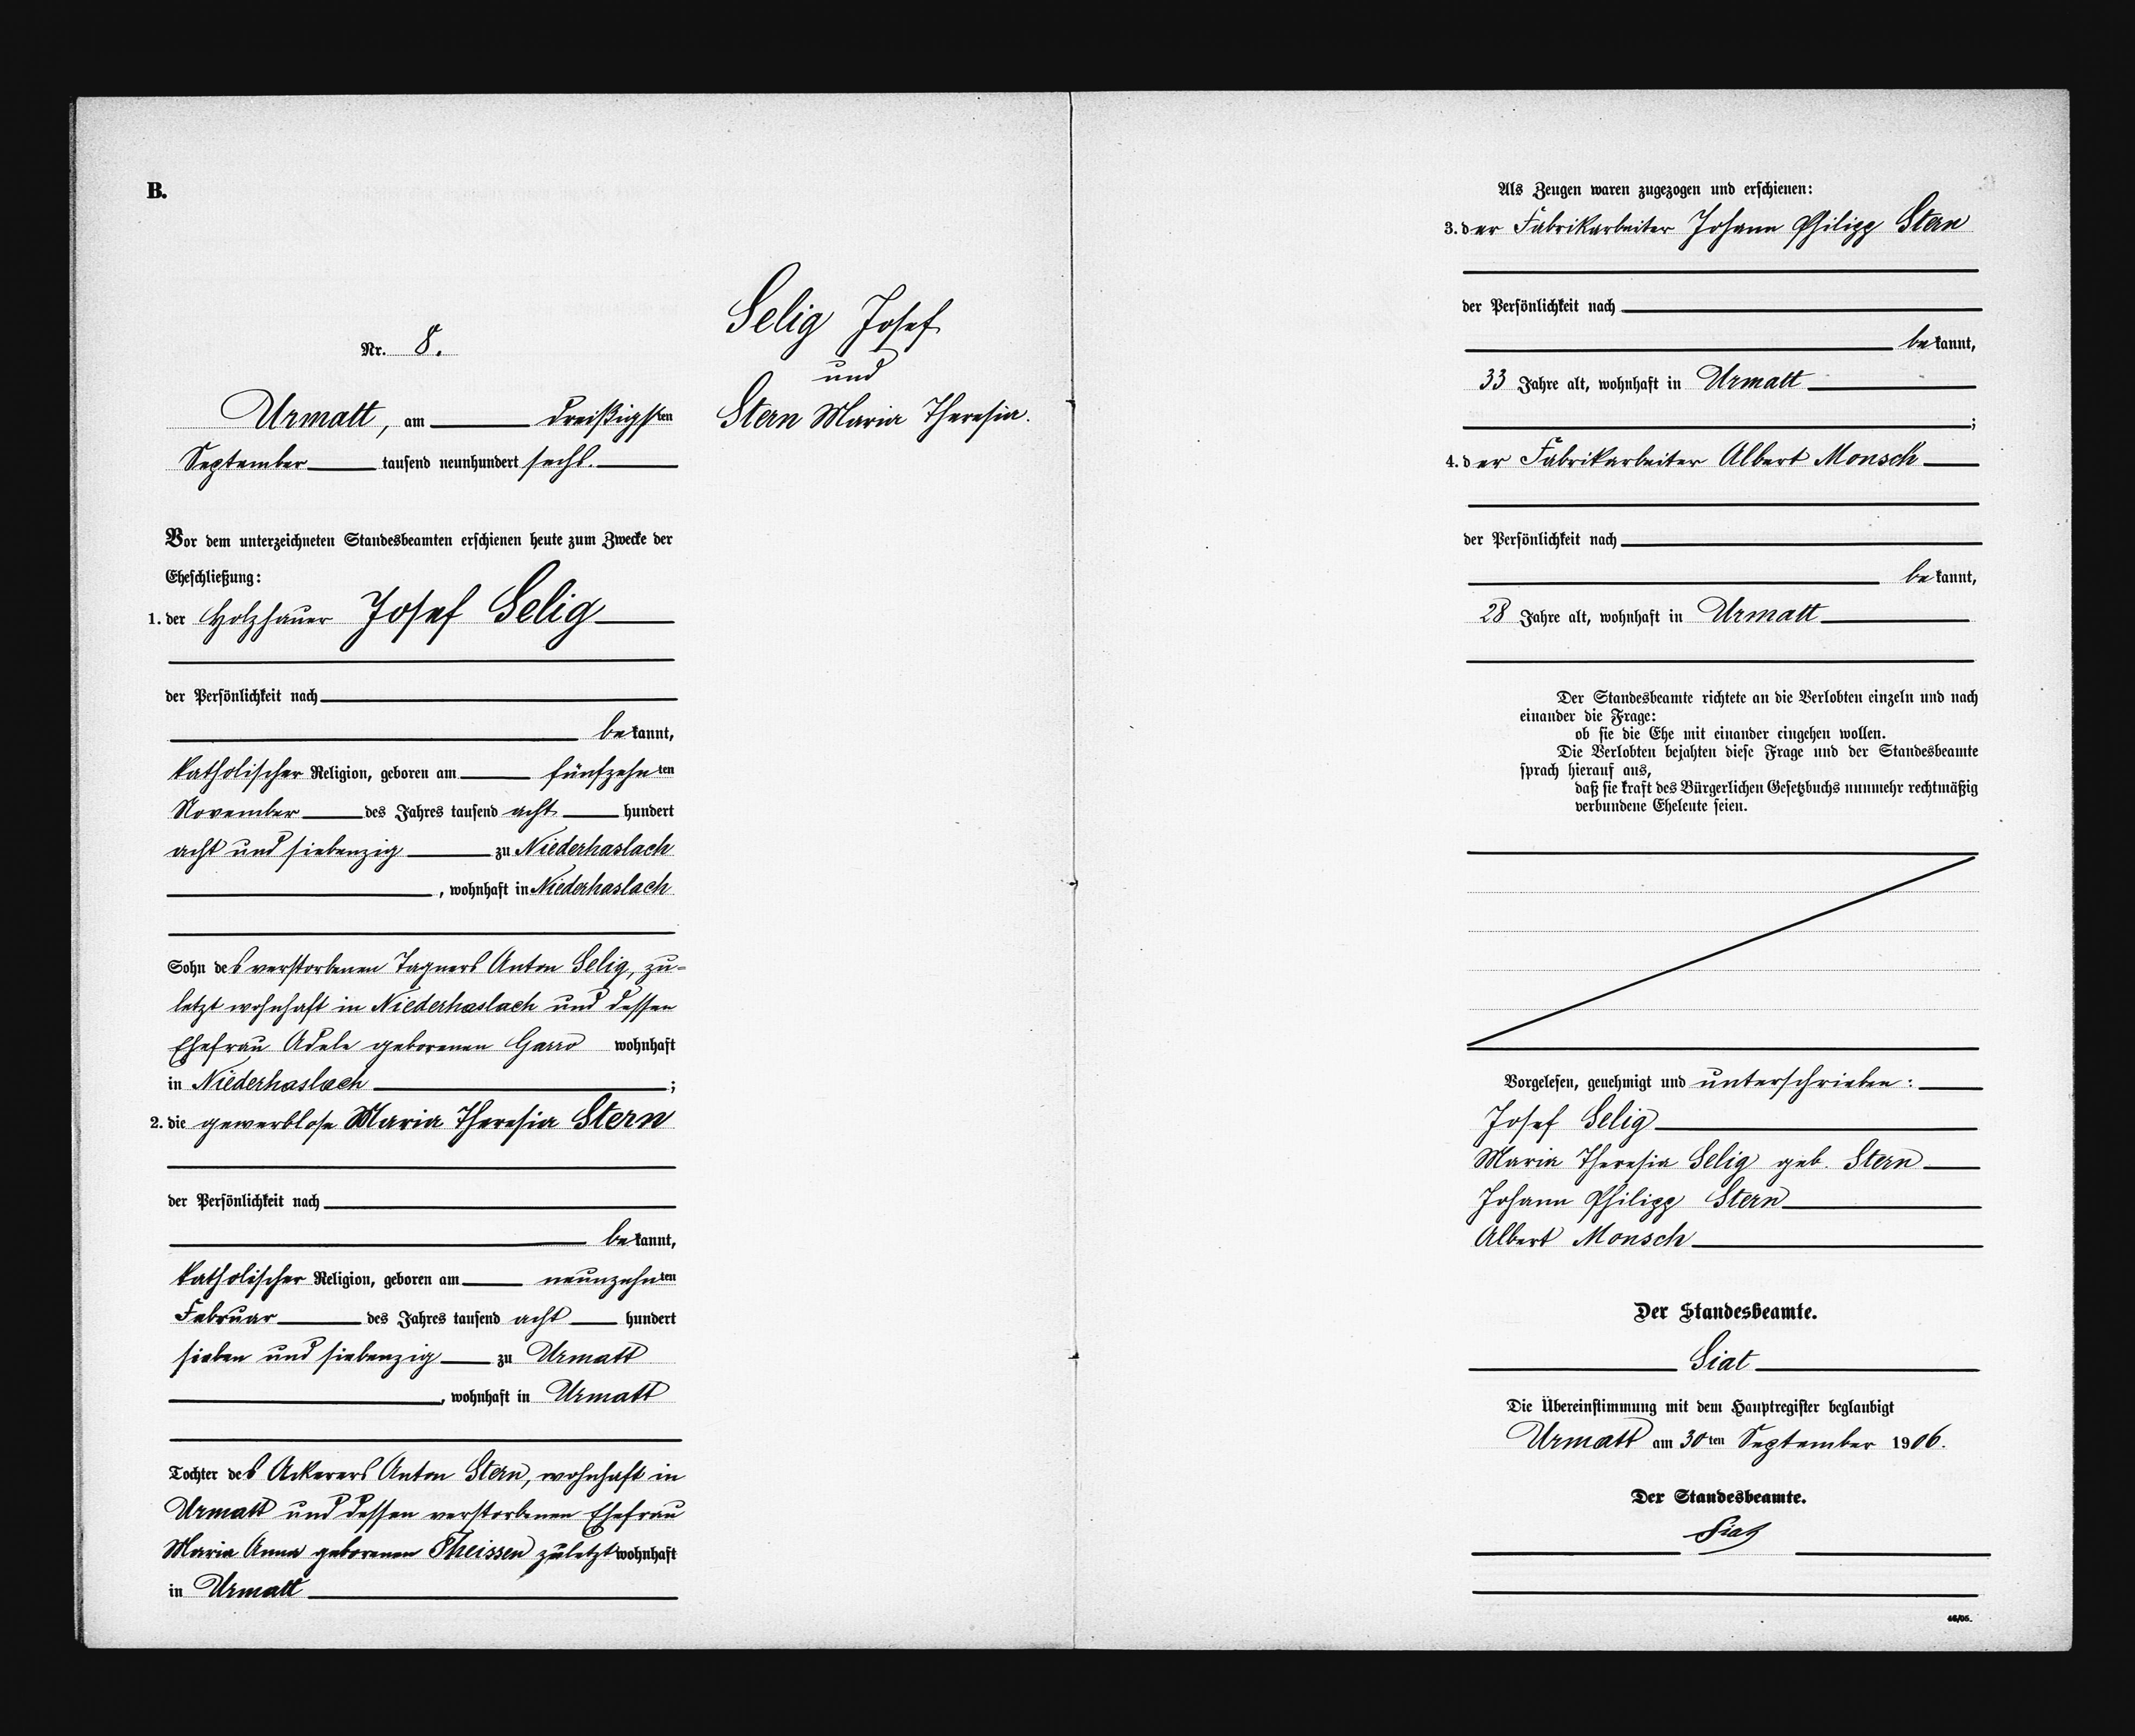 B.
Nr. 8.
Urmatt, am dreißigsten
September tausend neunhundert sechs.
Selig Josef
und
Stern Maria Theresia.
Vor dem unterzeichneten Standesbeamten erschienen heute zum Zwecke der
Eheschließung:
1. der Holzhauer Josef Selig
der Persönlichkeit nach
bekannt,
katholischer Religion, geboren am fünfzehnten
November des Jahres tausend acht hundert
acht und siebenzig zu Niederhaslach
, wohnhaft in Niederhaslach
Sohn des verstorbenen Tagners Anton Selig, zu=
letzt wohnhaft in Niederhaslach und dessen
Ehefrau Adele geborenen Garro wohnhaft
in Niederhaslach ;
2. die gewerblose Maria Theresia Stern
der Persönlichkeit nach
bekannt,
katholischer Religion, geboren am neunzehnten
Februar des Jahres tausend acht hundert
sieben und siebenzig zu Urmatt
, wohnhaft in Urmatt
Tochter des Ackerers Anton Stern, wohnhaft in
Urmatt und dessen verstorbenen Ehefrau
Maria Anna geborenen Theissen zuletzt wohnhaft
in Urmatt
Als Zeugen waren zugezogen und erschienen:
3. der Fabrikarbeiter Johann Philipp Stern
der Persönlichkeit nach
bekannt,
33 Jahre alt, wohnhaft in Urmatt
;
4. der Fabrikarbeiter Albert Monsch
der Persönlichkeit nach
bekannt,
28 Jahre alt, wohnhaft in Urmatt
Der Standesbeamte richtete an die Verlobten einzeln und nach
einander die Frage:
ob sie die Ehe mit einander eingehen wollen.
Die Verlobten bejahten diese Frage und der Standesbeamte
sprach hierauf aus,
daß sie kraft des Bürgerlichen Gesetzbuchs nunmehr rechtmäßig
verbundene Eheleute seien.
Vorgelesen, genehmigt und unterschrieben:
Josef Selig
Maria Theresia Selig geb. Stern
Johann Philipp Stern
Albert Monsch
Der Standesbeamte.
Siat
Die Übereinstimmung mit dem Hauptregister beglaubigt
Urmatt am 30ten September 1906.
Der Standesbeamte.
Siat